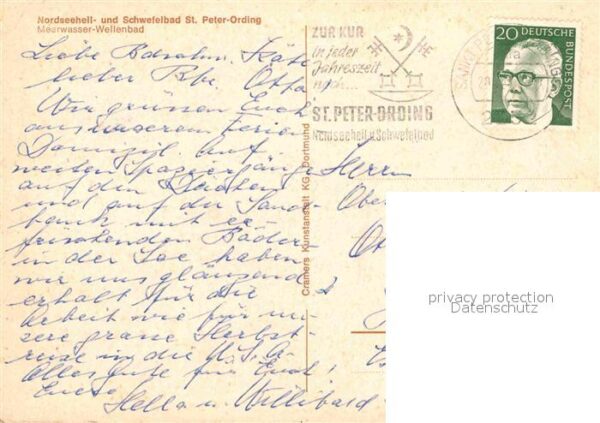 Nordseeheil- und Schwefelbad St. Peter-Ording
Meerwasser-Wellenbad
Liebe Käte
lieber Otto
Wir grüssen Euch
aus unserem Ferien
Domizil. Auf
weiten Spaziergängen
auf den
und auf der Sand-
bank mit er-
frischenden Bäder
in der See haben
wir uns glänzend
erholt für die
Arbeit wie für un-
sere grosse Herbst-
reise in die U.S.A.
Alles gute für Euch!
Eure
Hella u. Willibald
Cramers Kunstanstalt KG, Dortmund
ZUR KUR
in jeder
Jahreszeit
nach...
ST. PETER-ORDING
Nordseeheil u. Schwefelbad
20 DEUTSCHE
BUNDESPOST
Herrn
privacy protection
Datenschutz